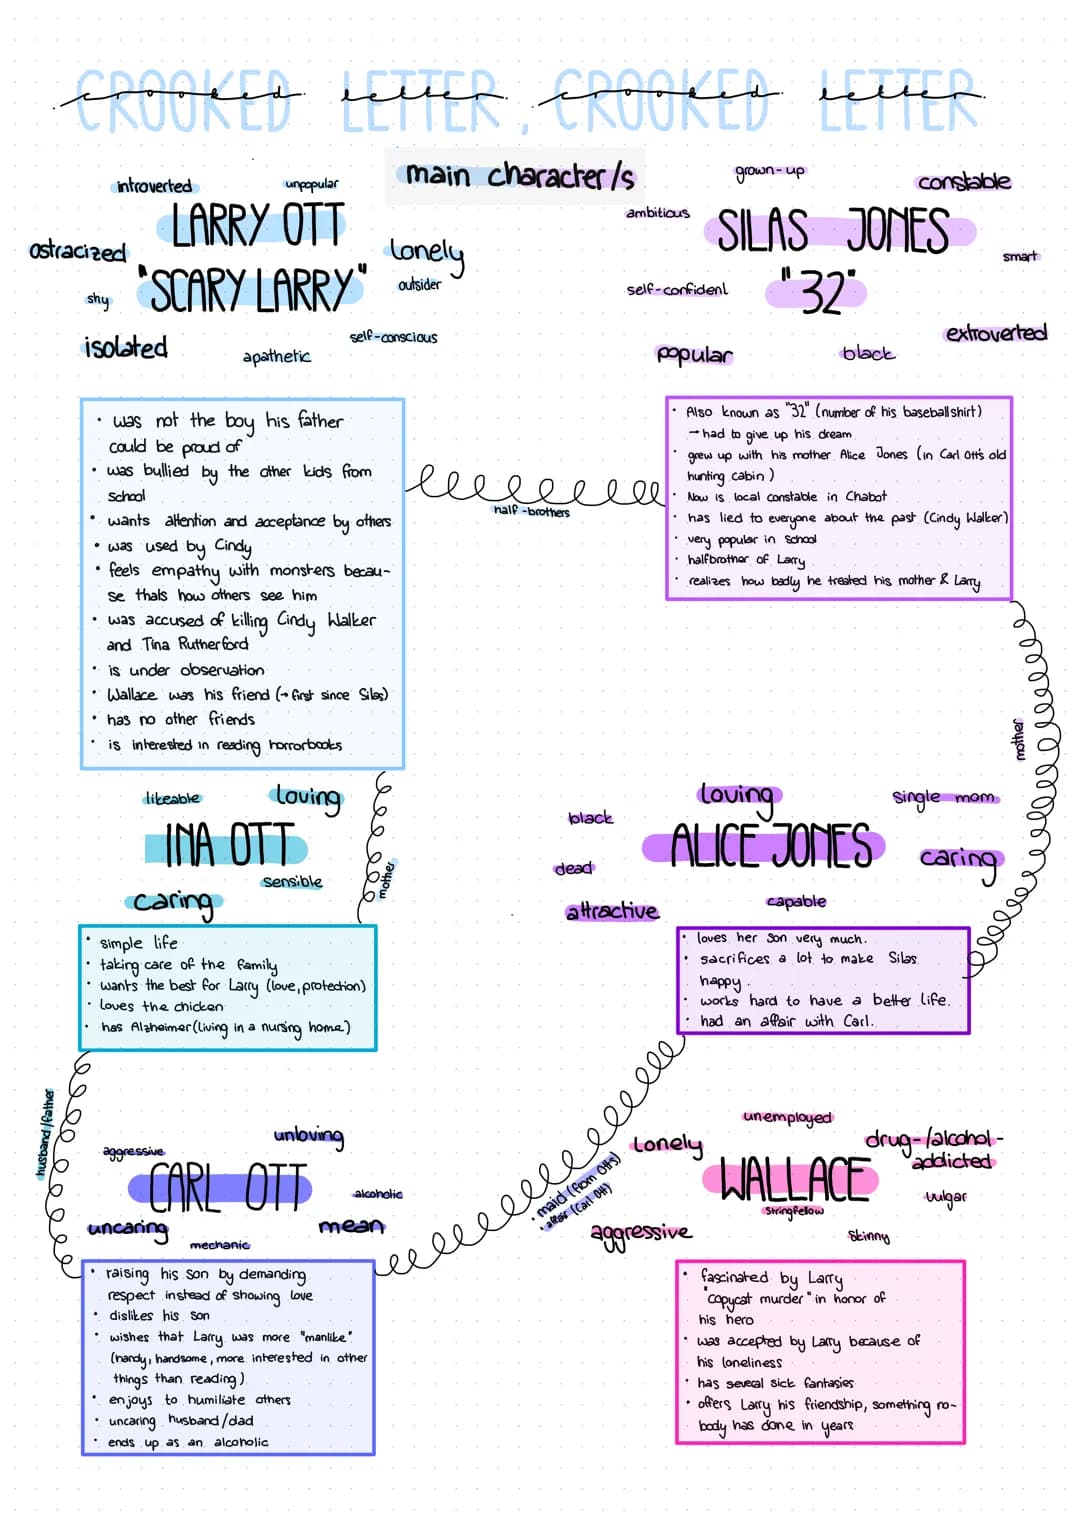 CROOKED LETTER, CROOKED LETTER
crooked letter crooked letter
main character/s
introverted
unpopular
LARRY OTT
ostracized
lonely
"SCARY LARRY"
outsider
shy
self-conscious
isolated
apathetic
grown-up
constable
ambitious
SILAS JONES
smart
self-confident
"32"
extroverted
popular
black
• was not the boy his father
could be proud of
• was bullied by the other kids from
school
• wants attention and acceptance by others
• was used by Cindy
• feels empathy with monsters becau-
se thats how others see him
• was accused of killing Cindy Walker
and Tina Rutherford
• is under observation
• Wallace was his friend (→ first since Silas)
• has no other friends
• is interested in reading horrorbooks
half-brothers
• Also known as "32" (number of his baseballshirt)
→ had to give up his dream
• grew up with his mother Alice Jones (in Carl Ott's old
hunting cabin)
• Now is local constable in Chabot
• has lied to everyone about the past (Cindy Walker)
• very popular in school
• halfbrother of Larry
• realizes how badly he treated his mother & Larry
mother
mother
likeable
loving
INA OTT
sensible
caring
• simple life
• taking care of the family
• wants the best for Larry (love, protection)
• loves the chicken
• has Alzheimer (living in a nursing home)
loving
single mom
black
ALICE JONES
caring
dead
capable
attractive
• loves her son very much.
• sacrifices a lot to make Silas
happy.
• works hard to have a better life.
• had an affair with Carl.
husband/father
• maid (from Otts)
• affair (Carl Ott)
unloving
aggressive
CARL OTT
alcoholic
uncaring
mean
mechanic
• raising his son by demanding
respect instead of showing love
• dislikes his son
• wishes that Larry was more "manlike"
(handy, handsome, more interested in other
things than reading)
• enjoys to humiliate others
• uncaring husband/dad
• ends up as an alcoholic
unemployed
lonely
drug-/alcohol-
addicted
WALLACE
Stringfellow
vulgar
aggressive
skinny
• fascinated by Larry
"copycat murder" in honor of
his hero
• was accepted by Larry because of
his loneliness
• has several sick fantasies
• offers Larry his friendship, something no-
body has done in years